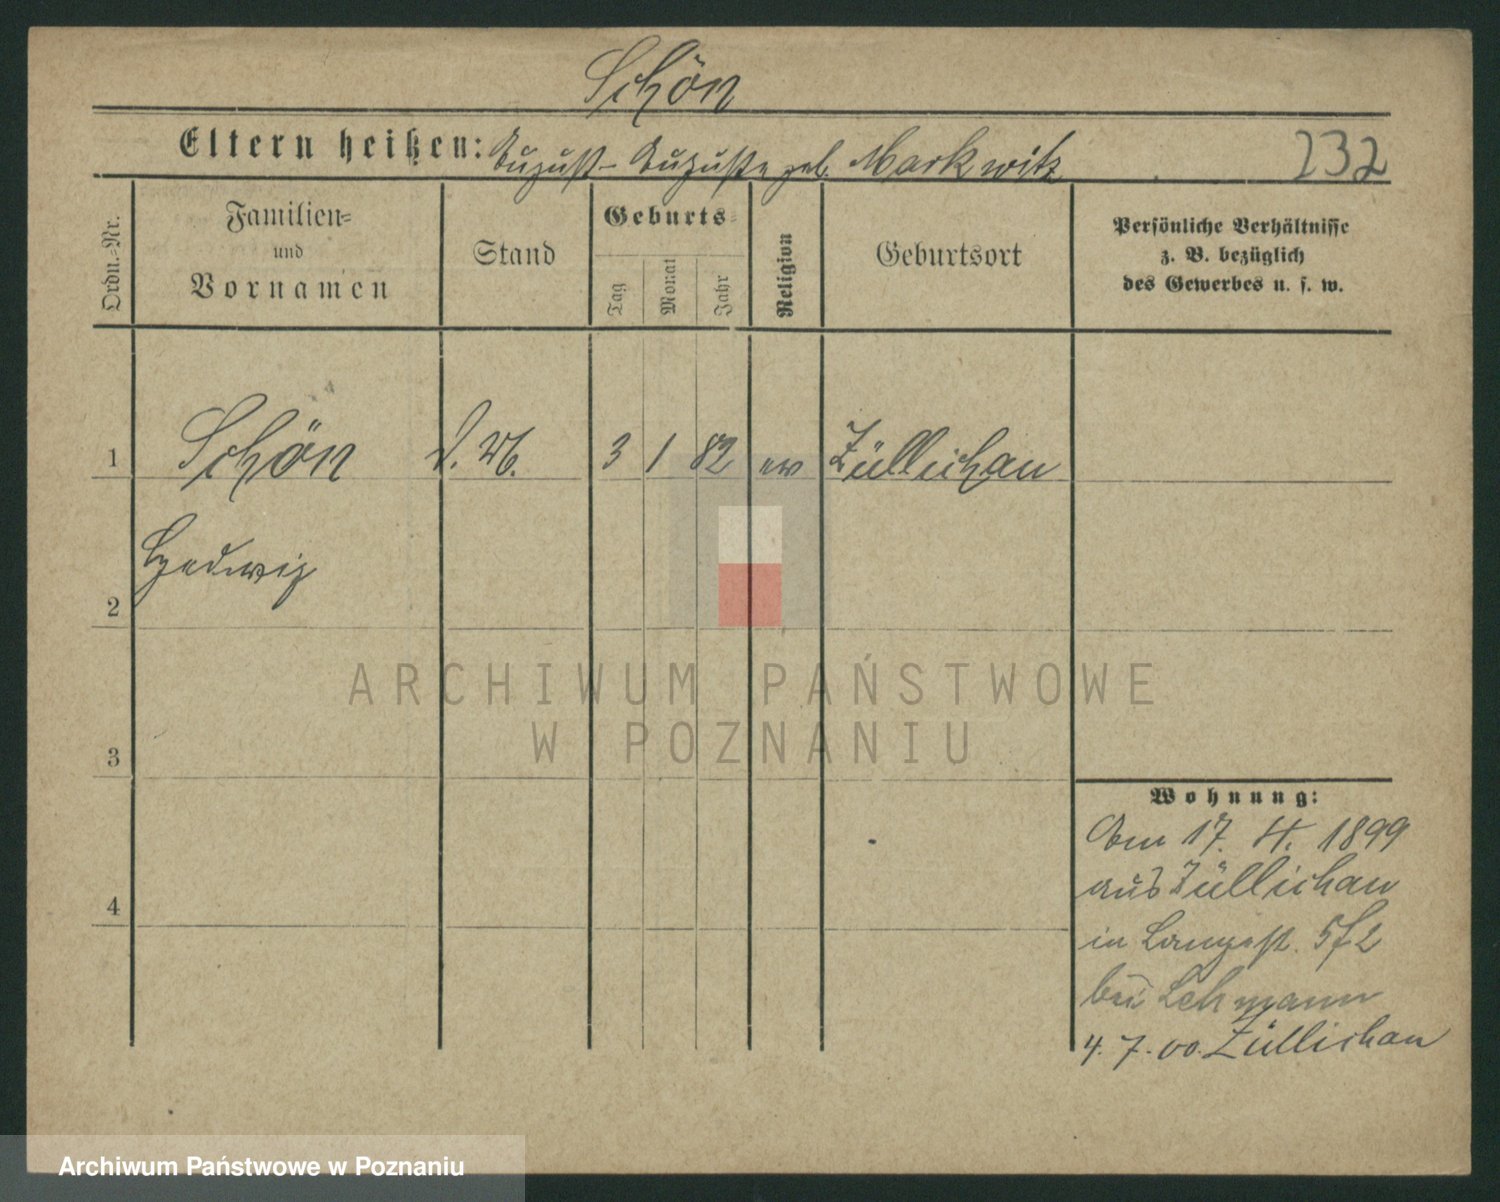 Schön
Eltern heißen: August - Auguste geb. Markwitz 232
Ordn.-Nr.
Familien-
und
Vornamen
Stand
Geburts-
Tag
Monat
Jahr
Religion
Geburtsort
Persönliche Verhältnisse
z. B. bezüglich
des Gewerbes u. s. w.
1 Schön 3 1 82 ev Züllichau
Hedwig
2
ARCHIWUM PAŃSTWOWE
W POZNANIU
3
Wohnung:
Am 17. 4. 1899
aus Züllichau
4
in Langest.
bei Lehmann
4. 7. 00. Züllichau
Archiwum Państwowe w Poznaniu